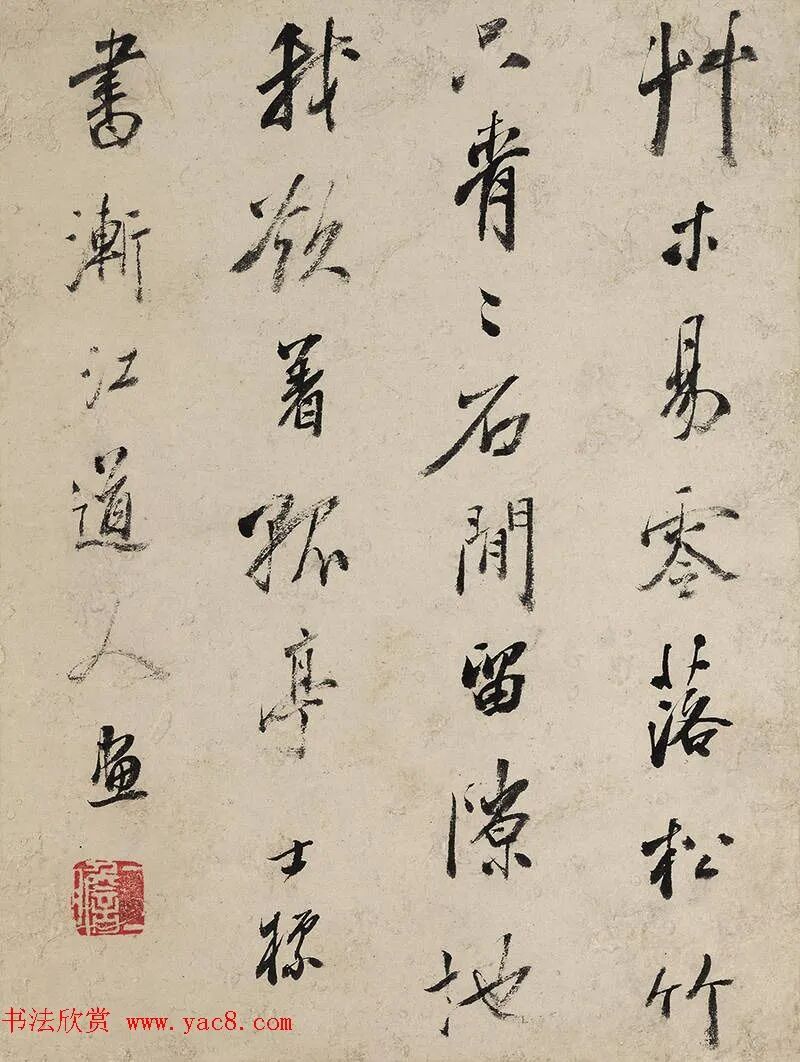 艸木易零落松竹
只青〻石間留隙地
我欲着孤亭 士標
書漸江道人畫
书法欣赏 www.yac8.com